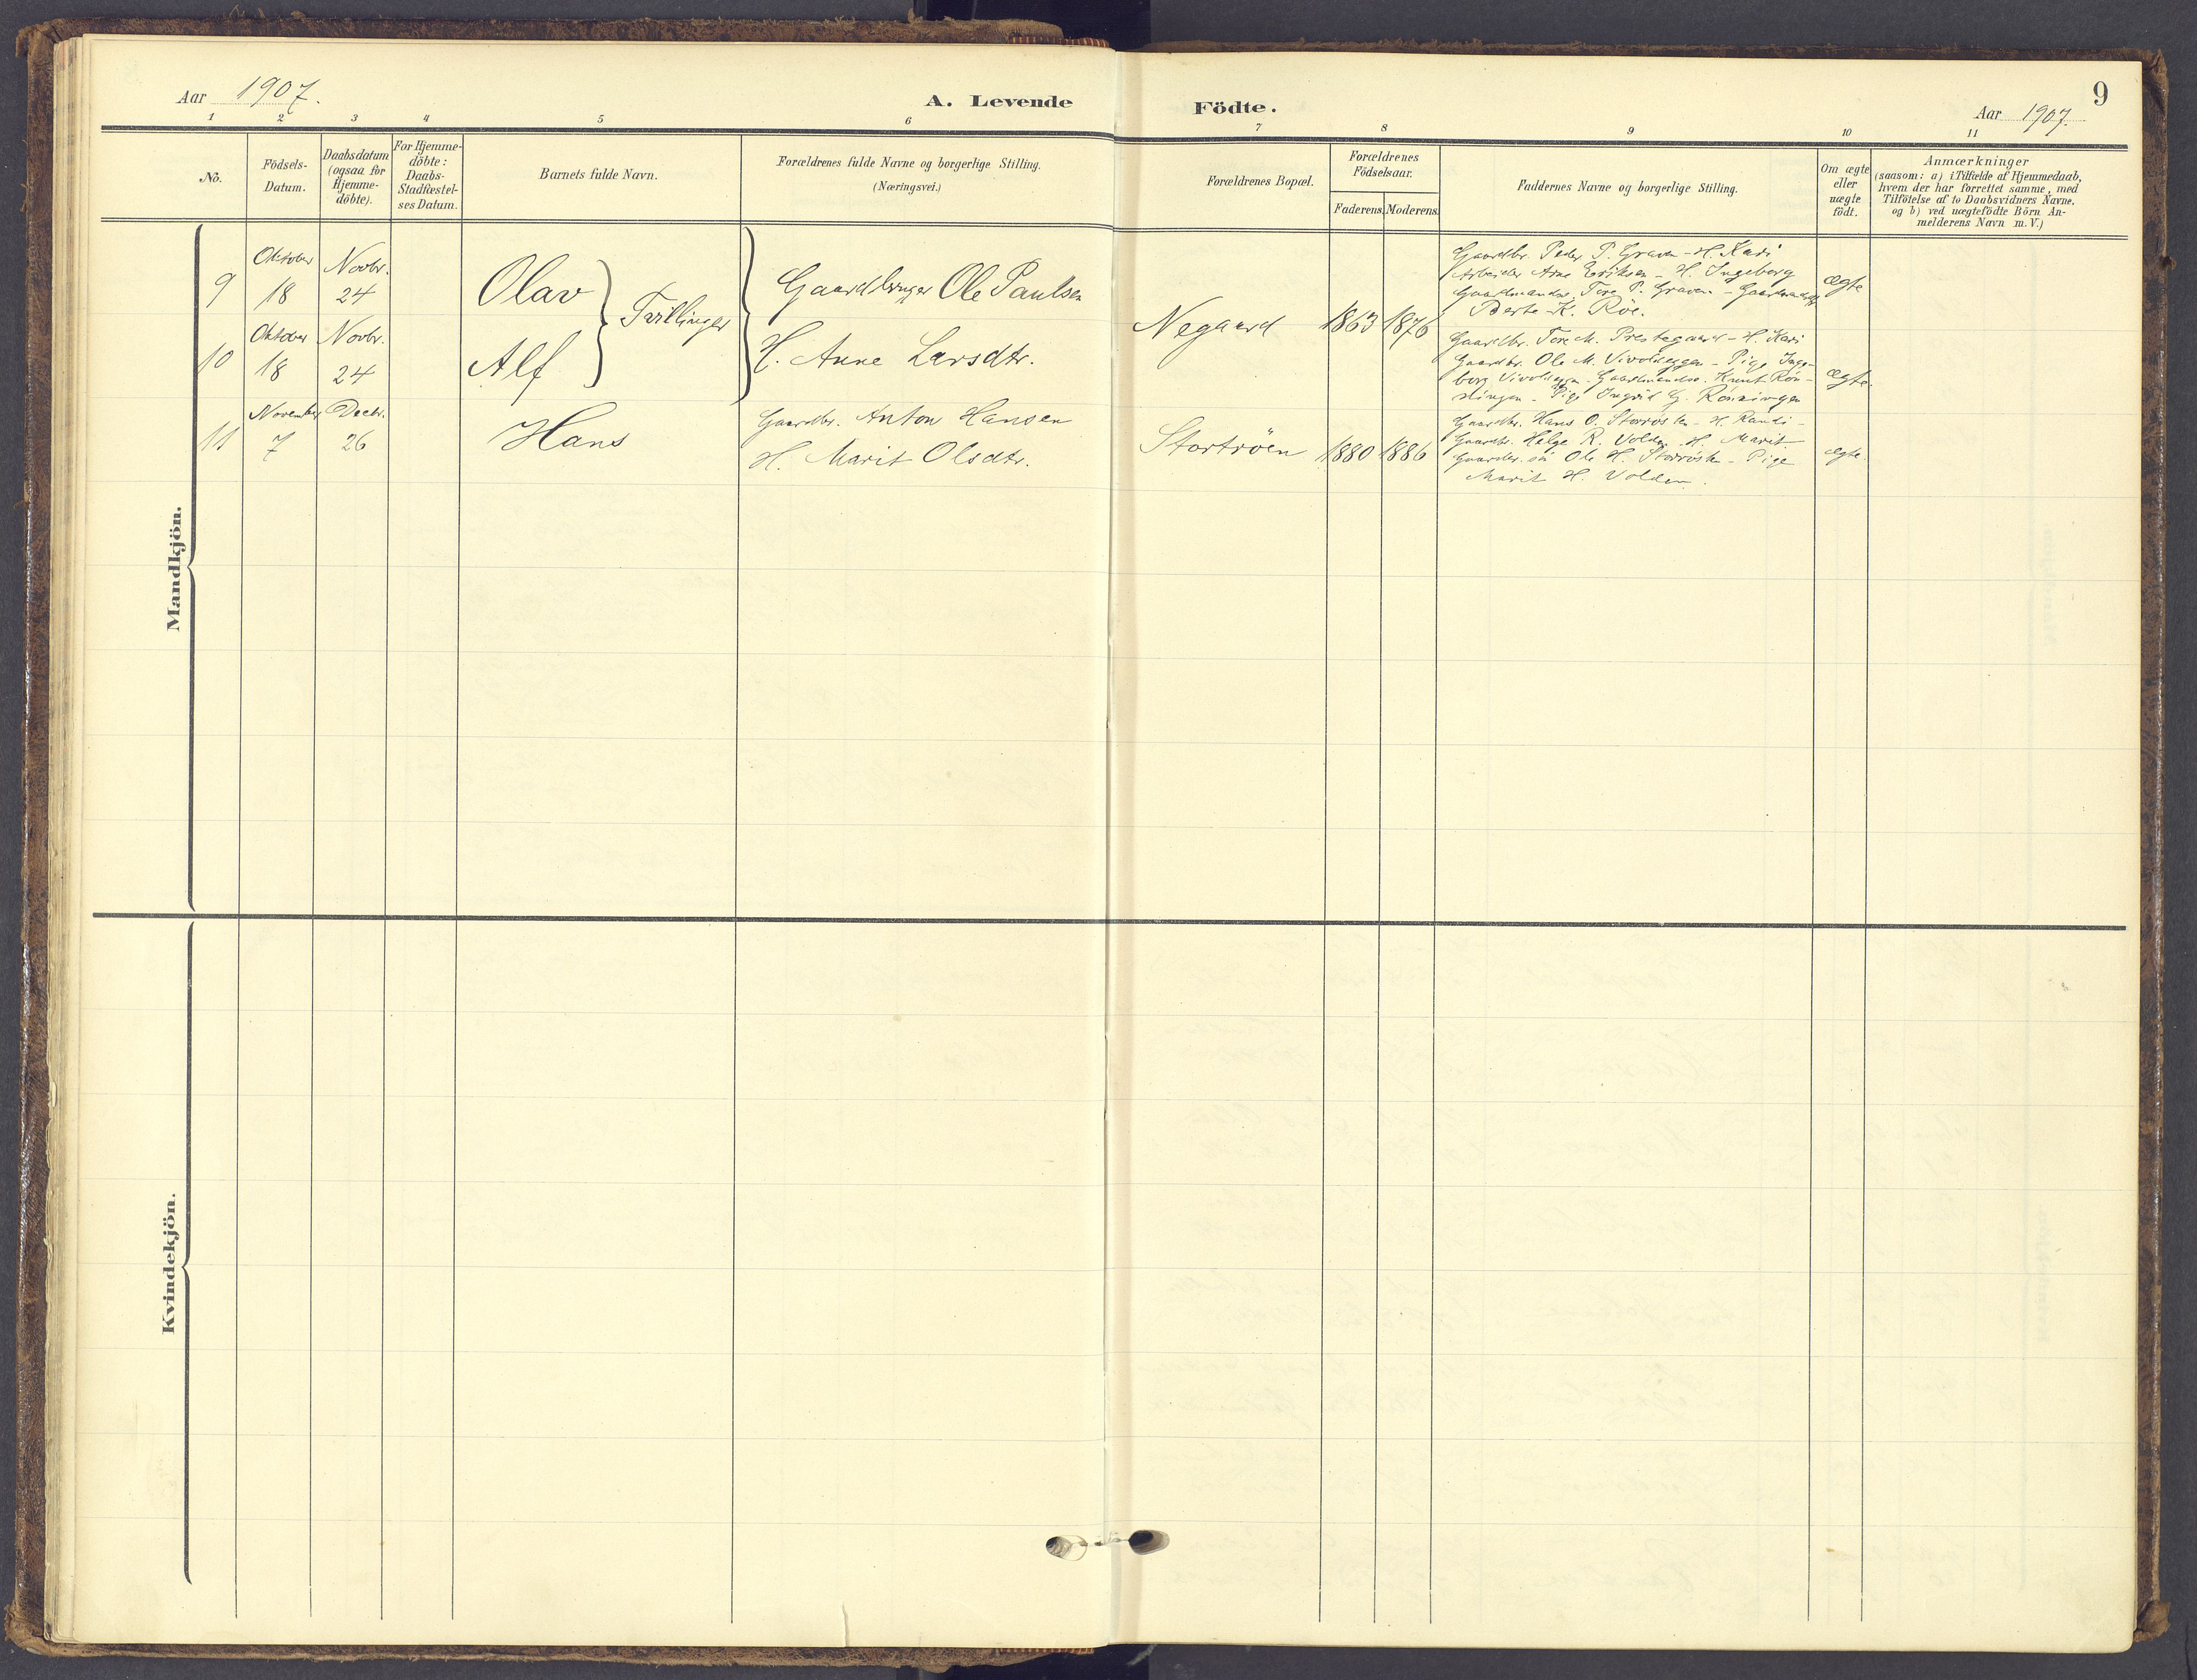 Aar 1907.
A. Levende
Födte.
9
Aar 1907.
1 2 3 4 5 6 7 8 9 10 11
No.
Födsels-
Datum.
Daabsdatum
(ogsaa for
Hjemme-
döbte).
For Hjemme-
döbte:
Daabs-
Stadfæstel-
ses Datum.
Barnets fulde Navn.
Forældrenes fulde Navne og borgerlige Stilling.
(Næringsvei.)
Forældrenes Bopæl.
Forældrenes
Födselsaar.
Faderens. Moderens.
Faddernes Navne og borgerlige Stilling.
Om ægte
eller
uægte
födt.
Anmærkninger
(saasom: a) i Tilfælde af Hjemmedaab,
hvem der har forrettet samme, med
Tilföielse af to Daabsvidners Navne.
og b) ved uægtefödte Börn An-
melderens Navn m.V.)
Mandkjön.
9
Oktober
18
Novbr.
24
Olav
Tvillinger
Gaardbruger Ole Paulsen
H. Anne Larsdtr.
Negaard
1863 1876
Gaardbr. Peder P. Graven - H. Kari
Arbeider Arne Eriksen - H. Ingeborg
Gaardmandss. Tore P. Graven -
Berte K. Röe.
ægte
10
Oktober
18
Novbr.
24
Alf
Gaardbr. Tore M. Prestegaard - H. Kari
Gaardbr. Ole M. Vivoldseggen - Pige Inge-
borg Vivoldseggen - Gaardmandss. Knut Rön-
ningen - Pige Ingrid G. Rönningen
ægte.
11
November
7
Decbr.
26
Hans
Gaardbr. Anton Hansen
H. Marit Olsdtr.
Stortröen
1880 1886
Gaardbr. Hans O. - H. Randi -
Gaardbr. Helge R. Volden - H. Marit
Ole H. - Pige
Marit H. Volden.
ægte.
Kvindekjön.